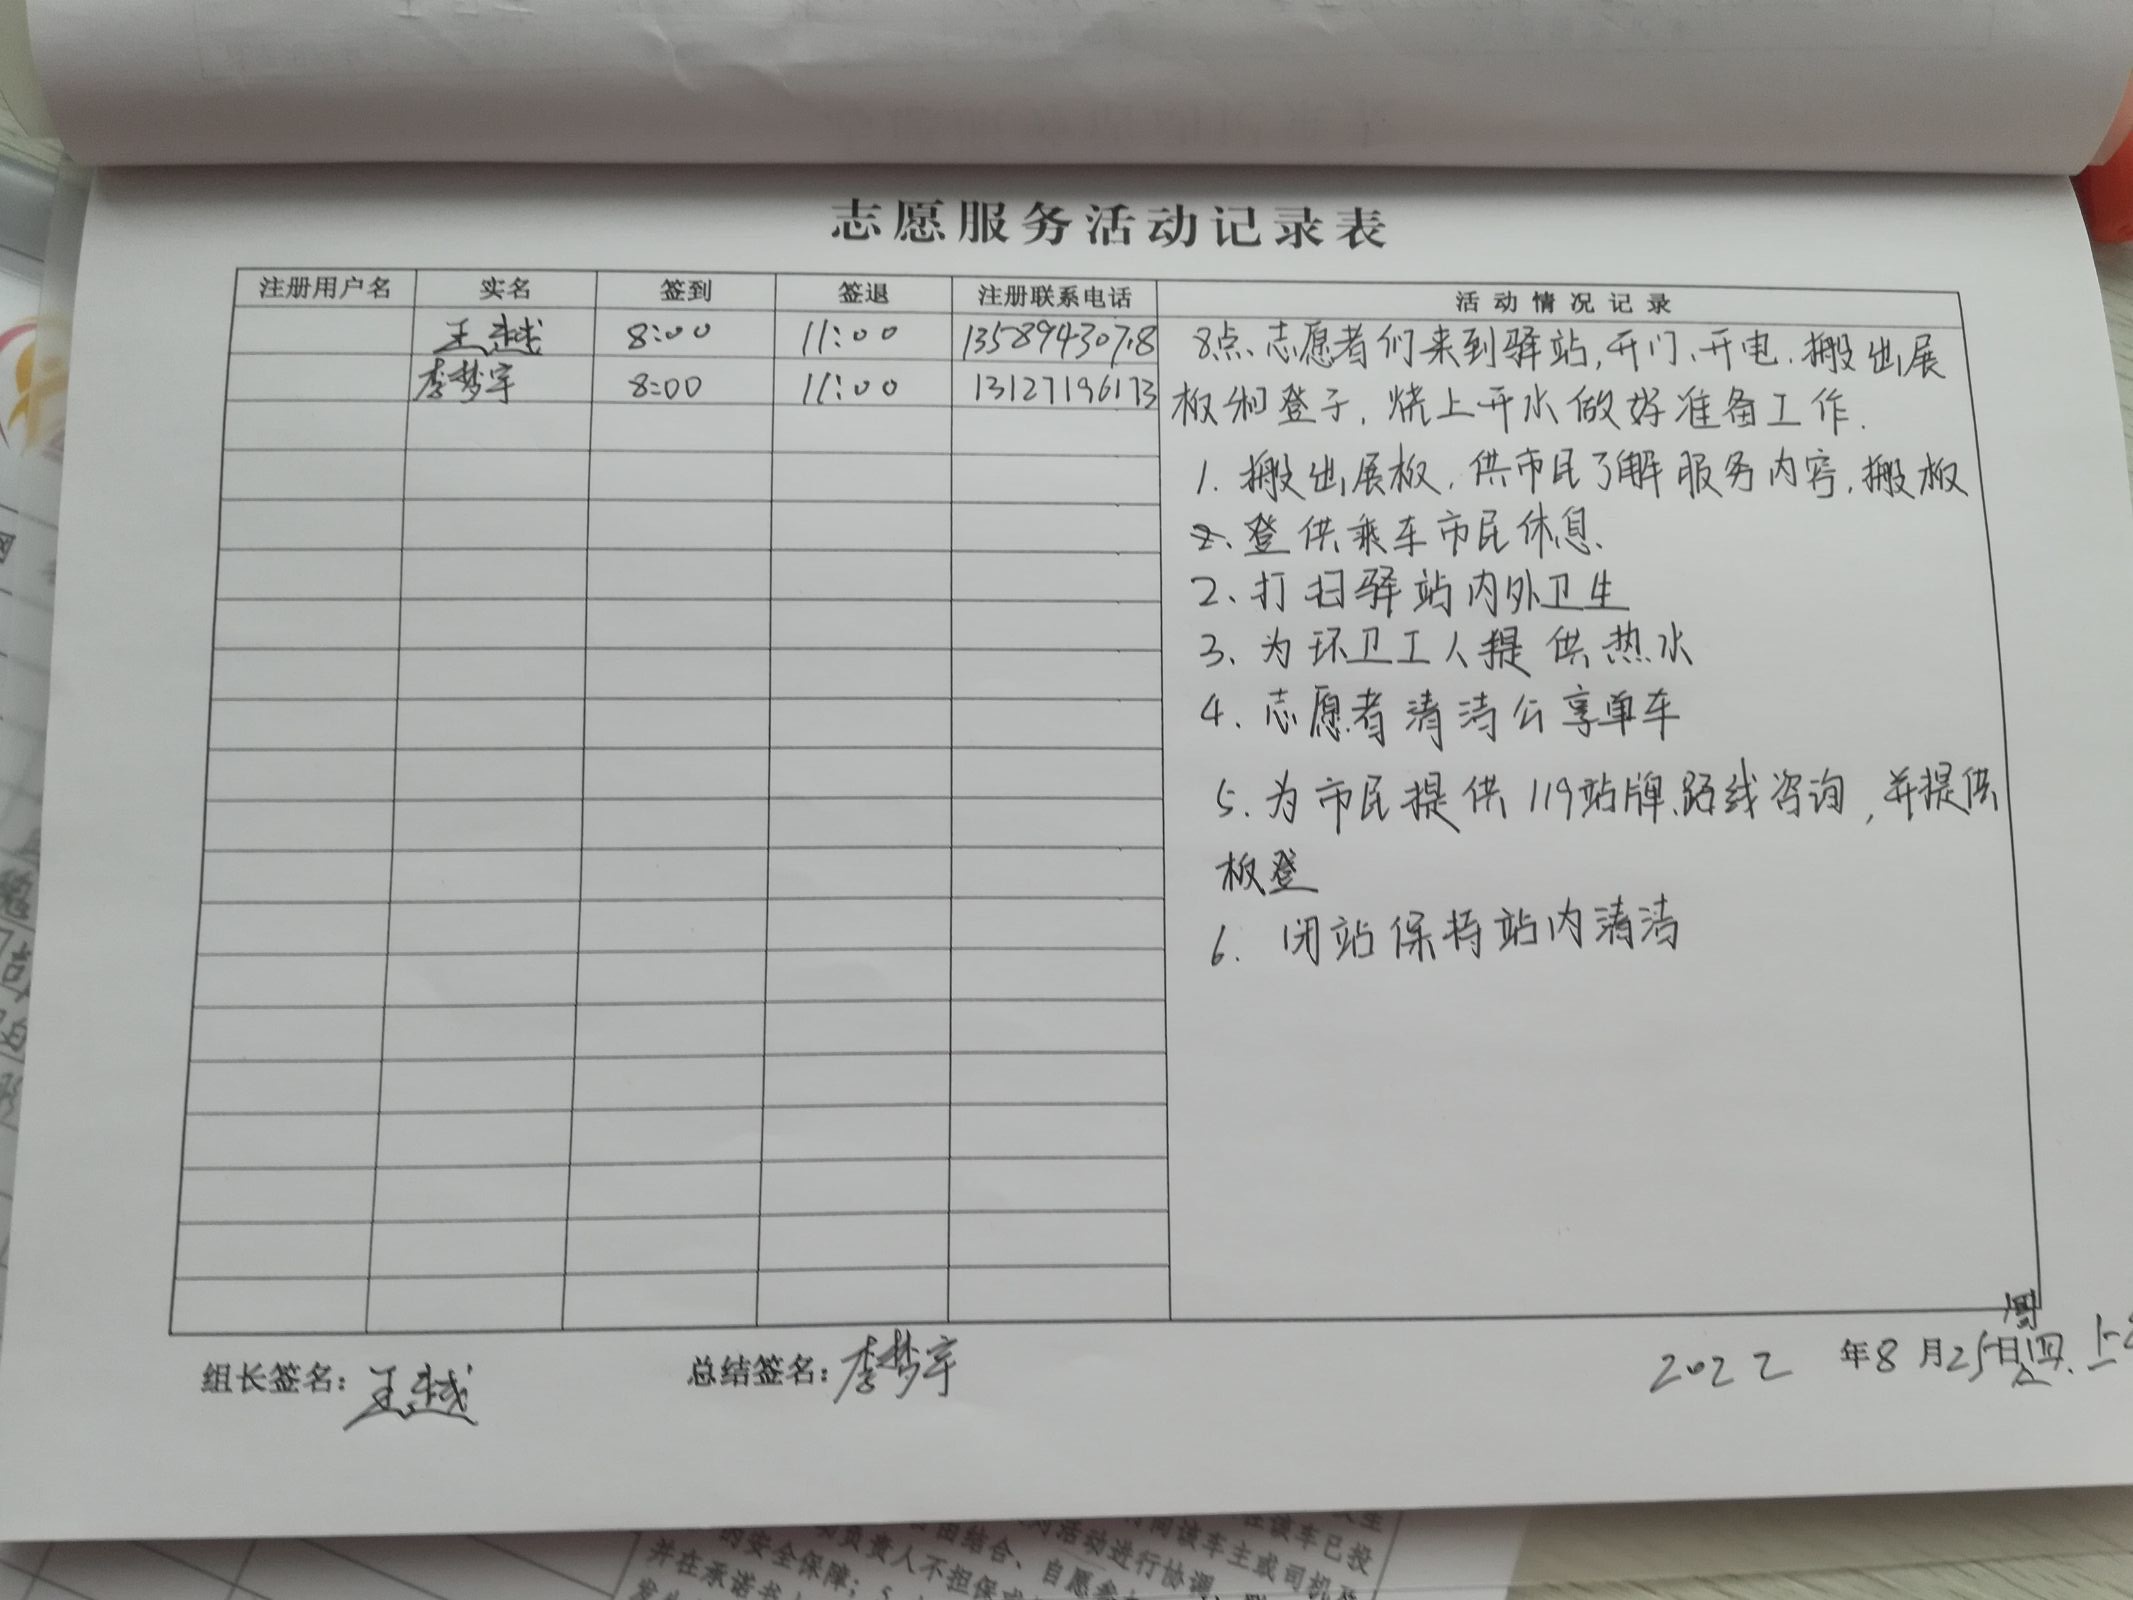 志愿服务活动记录表
注册用户名 实名 签到 签退 注册联系电话 活动情况记录
王越 8:00 11:00 13589430718
李梦宇 8:00 11:00 13127196173
8点、志愿者们来到驿站,开门、开电、搬出展
板和登子,烧上开水做好准备工作.
1. 搬出展板,供市民了解服务内容,搬板
登供乘车市民休息、
2、打扫驿站内外卫生
3、为环卫工人提供热水
4、志愿者清洁公享单车
5、为市民提供119站牌路线咨询,并提供
板登
6. 闭站保持站内清洁
组长签名: 王越 总结签名: 李梦宇 2022 年8月25日周四.上
并在承诺书
的安全保障; 5
负责人不担保
由结合、自愿参
活动进行协调
间该车主或司机及
在该车已投